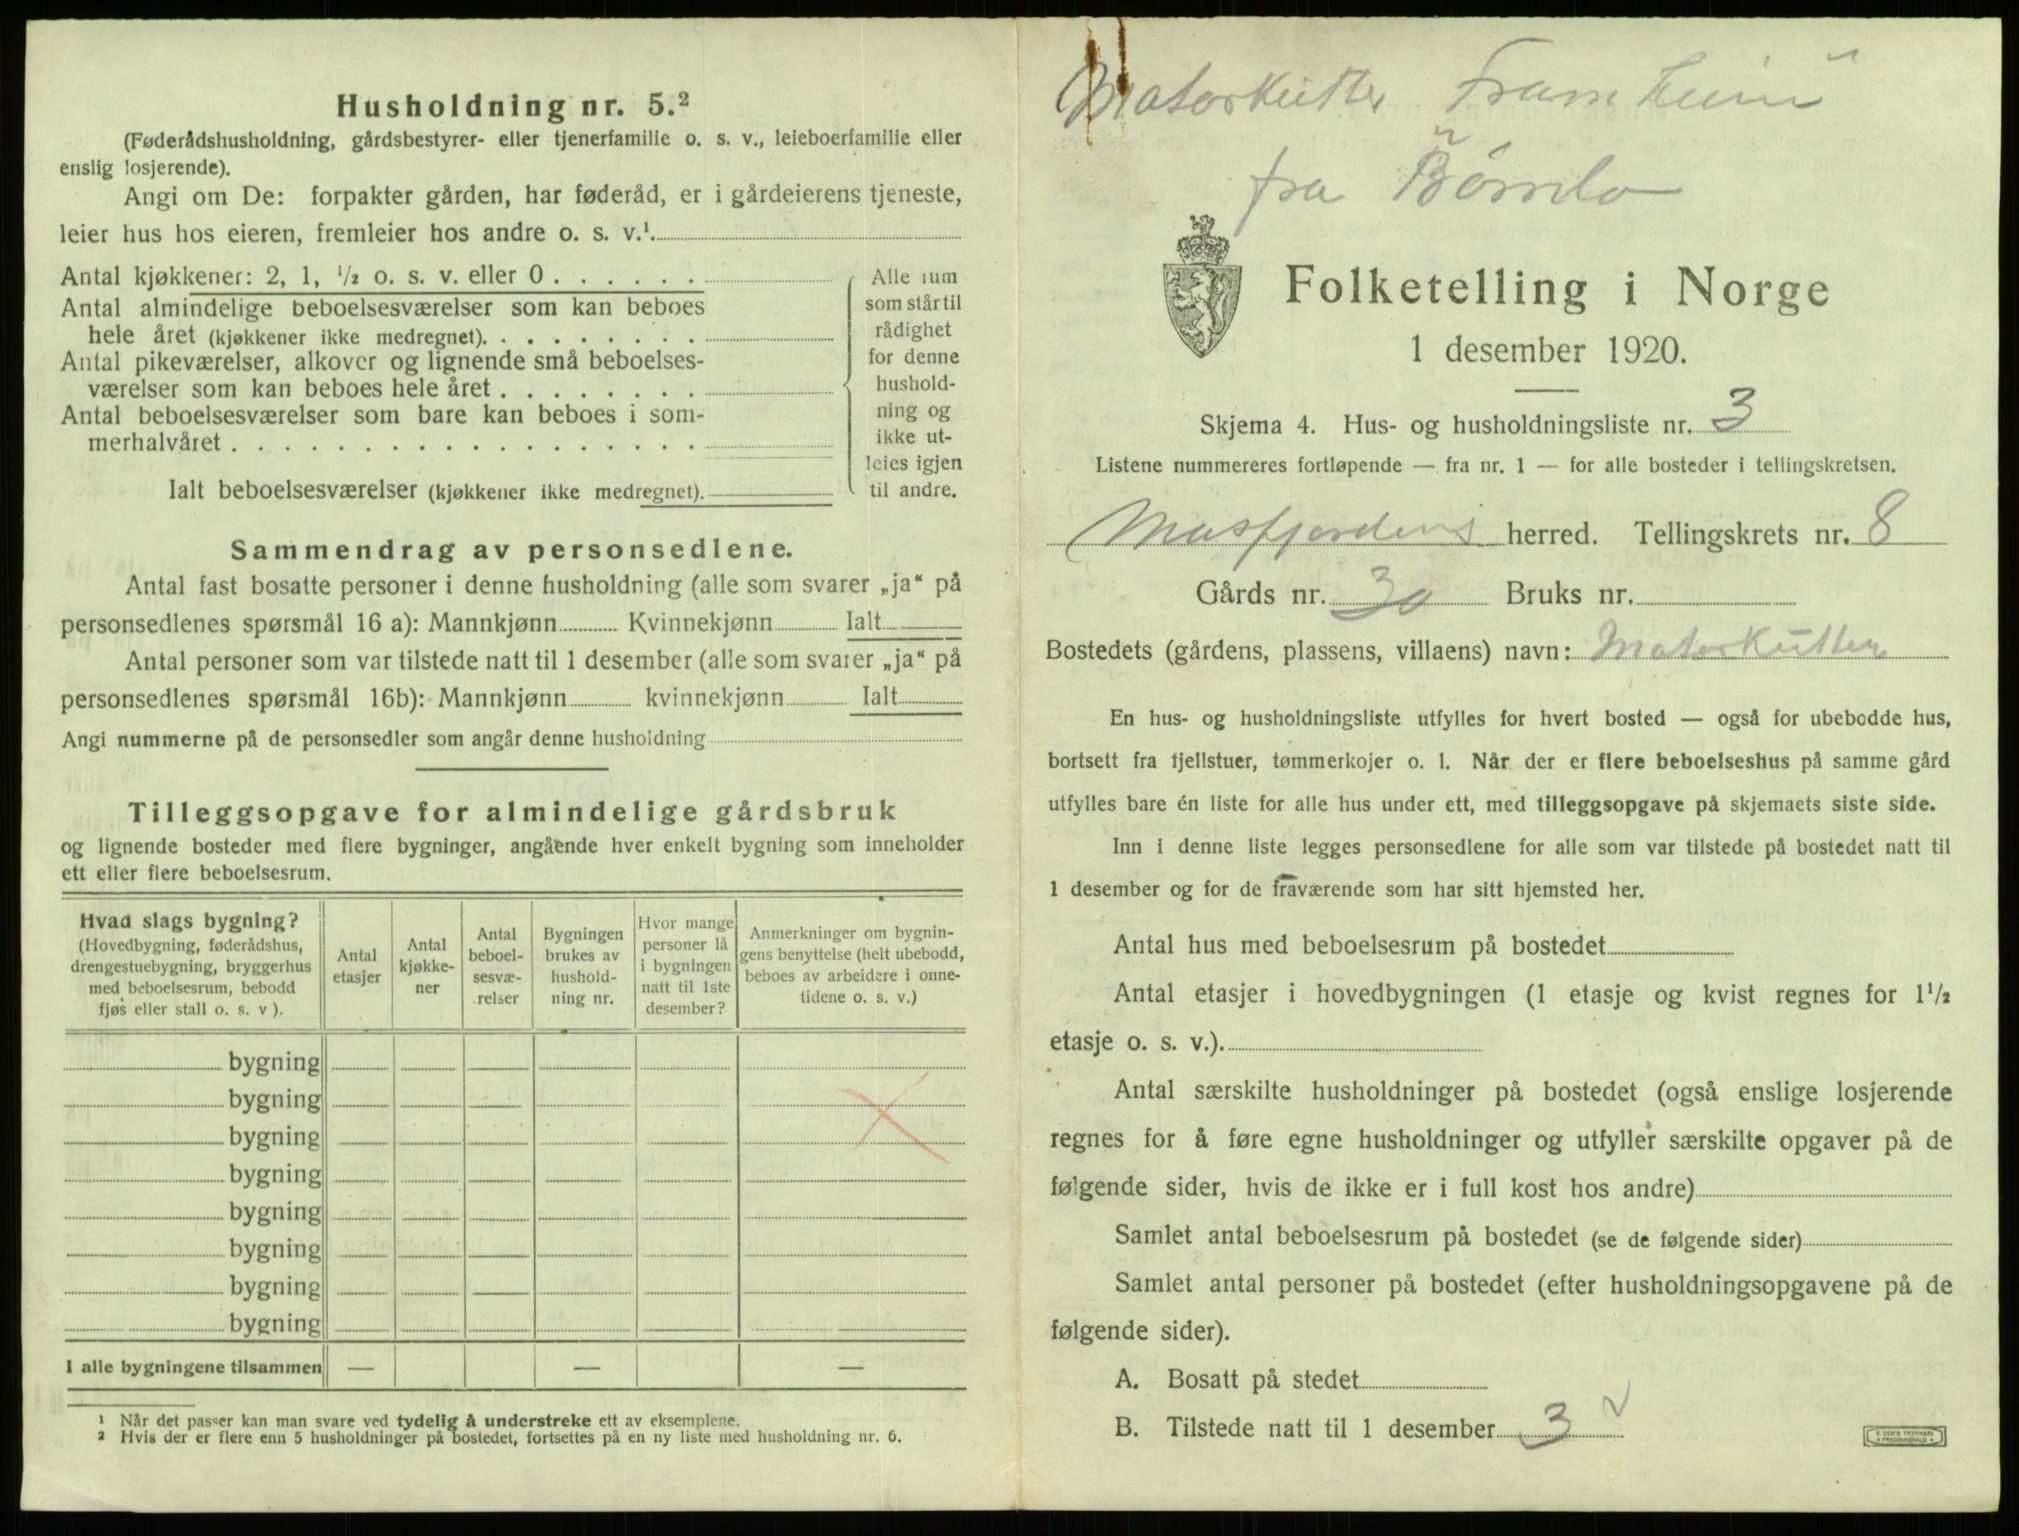 Husholdning nr. 5.²
(Føderådshusholdning, gårdsbestyrer- eller tjenerfamilie o. s. v., leieboerfamilie eller
enslig losjerende).
Angi om De: forpakter gården, har føderåd, er i gårdeierens tjeneste,
leier hus hos eieren, fremleier hos andre o. s. v.¹.
Antal kjøkkener: 2, 1, ½ o. s. v. eller 0 . . . . . .
Antal almindelige beboelsesværelser som kan beboes
hele året (kjøkkener ikke medregnet). . . . . . . . .
Antal pikeværelser, alkover og lignende små beboelses-
værelser som kan beboes hele året . . . . . . . .
Antal beboelsesværelser som bare kan beboes i som-
merhalvåret . . . . . . . . . . . . . . . . . .
Ialt beboelsesværelser (kjøkkener ikke medregnet).
Alle rum
som står til
rådighet
for denne
hushold-
ning og
ikke ut-
leies igjen
til andre.
Sammendrag av personsedlene.
Antal fast bosatte personer i denne husholdning (alle som svarer „ja“ på
personsedlenes spørsmål 16 a): Mannkjønn Kvinnekjønn Ialt
Antal personer som var tilstede natt til 1 desember (alle som svarer „ja“ på
personsedlenes spørsmål 16b): Mannkjønn kvinnekjønn Ialt
Angi nummerne på de personsedler som angår denne husholdning
Tilleggsopgave for almindelige gårdsbruk
og lignende bosteder med flere bygninger, angående hver enkelt bygning som inneholder
ett eller flere beboelsesrum.
Hvad slags bygning?
(Hovedbygning, føderådshus,
drengestuebygning, bryggerhus
med beboelsesrum, bebodd
fjøs eller stall o. s. v ).
Antal
etasjer
Antal
kjøkke-
ner
Antal
beboel-
sesvæ-
relser
Bygningen
brukes av
hushold-
ning nr.
Hvor mange
personer lå
i bygningen
natt til 1ste
desember?
Anmerkninger om bygnin-
gens benyttelse (helt ubebodd,
beboes av arbeidere i onne-
tidene o. s. v.)
bygning
bygning
bygning
bygning
bygning
bygning
bygning
bygning
I alle bygningene tilsammen — — —
¹ Når det passer kan man svare ved tydelig å understreke ett av eksemplene.
² Hvis der er flere enn 5 husholdninger på bostedet, fortsettes på en ny liste med husholdning nr. 6.
Motorkutter Framheim
fra Bömlo
Folketelling i Norge
1 desember 1920.
Skjema 4. Hus- og husholdningsliste nr. 3
Listene nummereres fortløpende — fra nr. 1 — for alle bosteder i tellingskretsen.
Masfjordens herred. Tellingskrets nr. 8
Gårds nr. 30 Bruks nr.
Bostedets (gårdens, plassens, villaens) navn: Motorkutter
En hus- og husholdningsliste utfylles for hvert bosted — også for ubebodde hus,
bortsett fra fjellstuer, tømmerkojer o. l. Når der er flere beboelseshus på samme gård
utfylles bare én liste for alle hus under ett, med tilleggsopgave på skjemaets siste side.
Inn i denne liste legges personsedlene for alle som var tilstede på bostedet natt til
1 desember og for de fraværende som har sitt hjemsted her.
Antal hus med beboelsesrum på bostedet
Antal etasjer i hovedbygningen (1 etasje og kvist regnes for 1½
etasje o. s. v.).
Antal særskilte husholdninger på bostedet (også enslige losjerende
regnes for å føre egne husholdninger og utfyller særskilte opgaver på de
følgende sider, hvis de ikke er i full kost hos andre)
Samlet antal beboelsesrum på bostedet (se de følgende sider)
Samlet antal personer på bostedet (efter husholdningsopgavene på de
følgende sider).
A. Bosatt på stedet
B. Tilstede natt til 1 desember 3